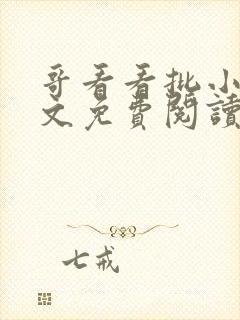 哥看看批小
文免費閱讀
七戒